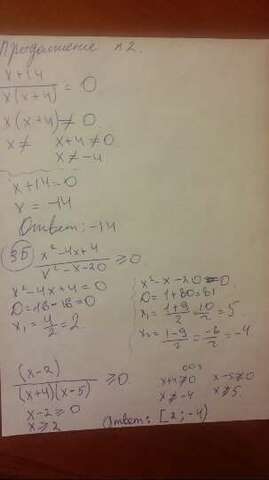 Продолжение №2.
x+14 / x(x+4) = 0
x(x+4)≠0
x≠ x+4≠0
x≠-4
x+14=0
x=-14
Ответ: -14
3Б x²-4x+4 / x²-x-20 ≥0
x²-4x+4=0
D=16-16=0
x₁=4/2=2
x²-x-20=0
D=1+80=81
x₁=1+9/2=10/2=5
x₂=1-9/2=-8/2=-4
(x-2) / (x+4)(x-5) ≥0
x-2≥0
x≥2
ОДЗ
x+4≠0 x-5≠0
x≠-4 x≠5
Ответ: [2;-4)